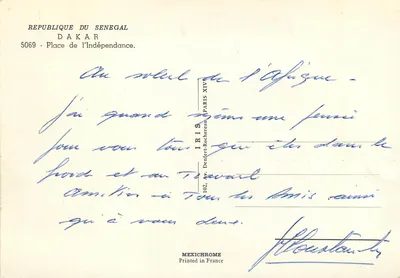 REPUBLIQUE DU SENEGAL
DAKAR
5069 - Place de l'Indépendance.
Au soleil de l'Afrique -
j'ai quand même une pensée
pour vous tous qui êtes dans le
froid et au travail
Amitiés à tous les amis ainsi
qu'à vous deux.
IRIS
102, Av. Denfert-Rochereau, PARIS XIV
MEXICHROME
Printed in France